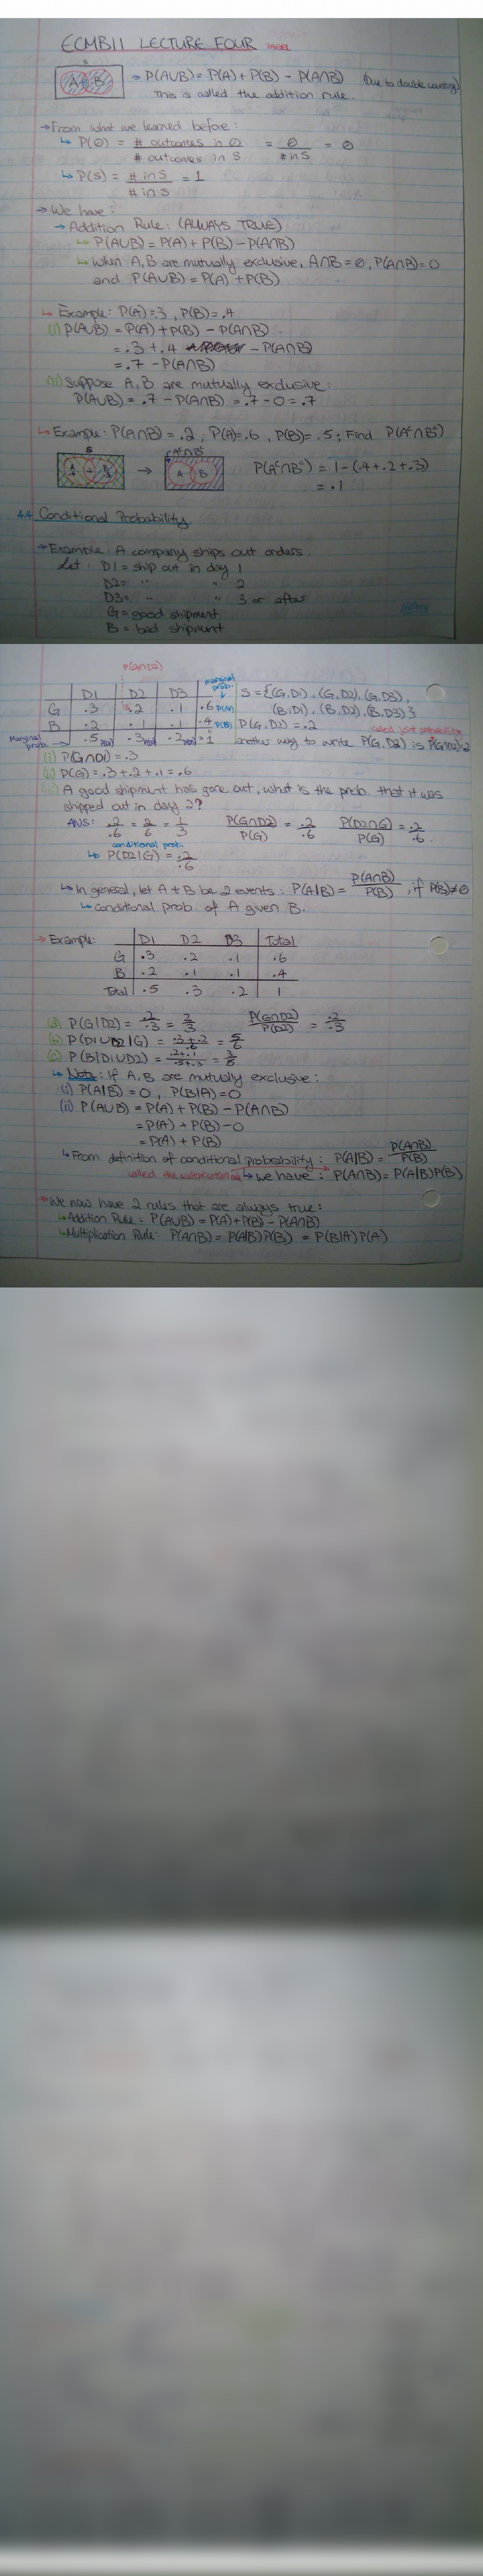 ECMB11 LECTURE FOUR PAGE 1
S
A B → P(A∪B) = P(A) + P(B) - P(A∩B) (Due to double counting)
This is called the addition rule.
→ From what we learned before:
↳ P(∅) = # outcomes in ∅ / # outcomes in S = 0 / # in S = 0
↳ P(S) = # in S / # in S = 1
→ We have:
→ Addition Rule: (ALWAYS TRUE)
↳ P(A∪B) = P(A) + P(B) - P(A∩B)
↳ When A, B are mutually exclusive, A∩B = ∅, P(A∩B) = 0
and P(A∪B) = P(A) + P(B)
↳ Example: P(A) = .3, P(B) = .4
(i) P(A∪B) = P(A) + P(B) - P(A∩B)
= .3 + .4 - P(A∩B)
= .7 - P(A∩B)
(ii) Suppose A, B are mutually exclusive:
P(A∪B) = .7 - P(A∩B) = .7 - 0 = .7
↳ Example: P(A∩B) = .2, P(A) = .6, P(B) = .5; Find P(Aᶜ∩Bᶜ)
S Aᶜ∩Bᶜ
A B → A B P(Aᶜ∩Bᶜ) = 1 - (.4 + .2 + .3)
= .1
4.4 Conditional Probability
→ Example: A company ships out orders.
Let: D1 = ship out in day 1
D2 = " " 2
D3 = " " 3 or after
G = good shipment
B = bad shipment
P(G∩D2)
marginal prob.
D1 D2 D3 S = {(G,D1), (G,D2), (G,D3),
G .3 .2 .1 .6 P(G) (B,D1), (B,D2), (B,D3)}
B .2 .1 .1 .4 P(B) P(G,D2) = .2 called joint probability
Marginal prob. → .5 P(D1) .3 P(D2) .2 P(D3) = 1 another way to write P(G,D2) is P(G∩D2) = .2
(i) P(G∩D1) = .3
(ii) P(G) = .3 + .2 + .1 = .6
(iii) A good shipment has gone out, what is the prob. that it was
shipped out in day 2?
ANS: .2/.6 = 2/6 = 1/3 P(G∩D2)/P(G) = .2/.6 P(D2∩G)/P(G) = .2/.6
conditional prob.
↳ P(D2|G) = .2/.6
↳ In general, let A + B be 2 events: P(A|B) = P(A∩B)/P(B), if P(B) ≠ 0
↳ conditional prob. of A given B.
→ Example: D1 D2 D3 Total
G .3 .2 .1 .6
B .2 .1 .1 .4
Total .5 .3 .2 1
(a) P(G|D2) = .2/.3 = 2/3 P(G∩D2)/P(D2) = .2/.3
(b) P(D1∪D2|G) = .3+.2/.6 = 5/6
(c) P(B|D1∪D2) = .2+.1/.5+.3 = 3/8
↳ Note: If A, B are mutually exclusive:
(i) P(A|B) = 0, P(B|A) = 0
(ii) P(A∪B) = P(A) + P(B) - P(A∩B)
= P(A) + P(B) - 0
= P(A) + P(B)
↳ From definition of conditional probability: P(A|B) = P(A∩B)/P(B)
called the multiplication rule ↳ we have: P(A∩B) = P(A|B)P(B)
→ We now have 2 rules that are always true:
↳ Addition Rule: P(A∪B) = P(A) + P(B) - P(A∩B)
↳ Multiplication Rule: P(A∩B) = P(A|B)P(B) = P(B|A)P(A)